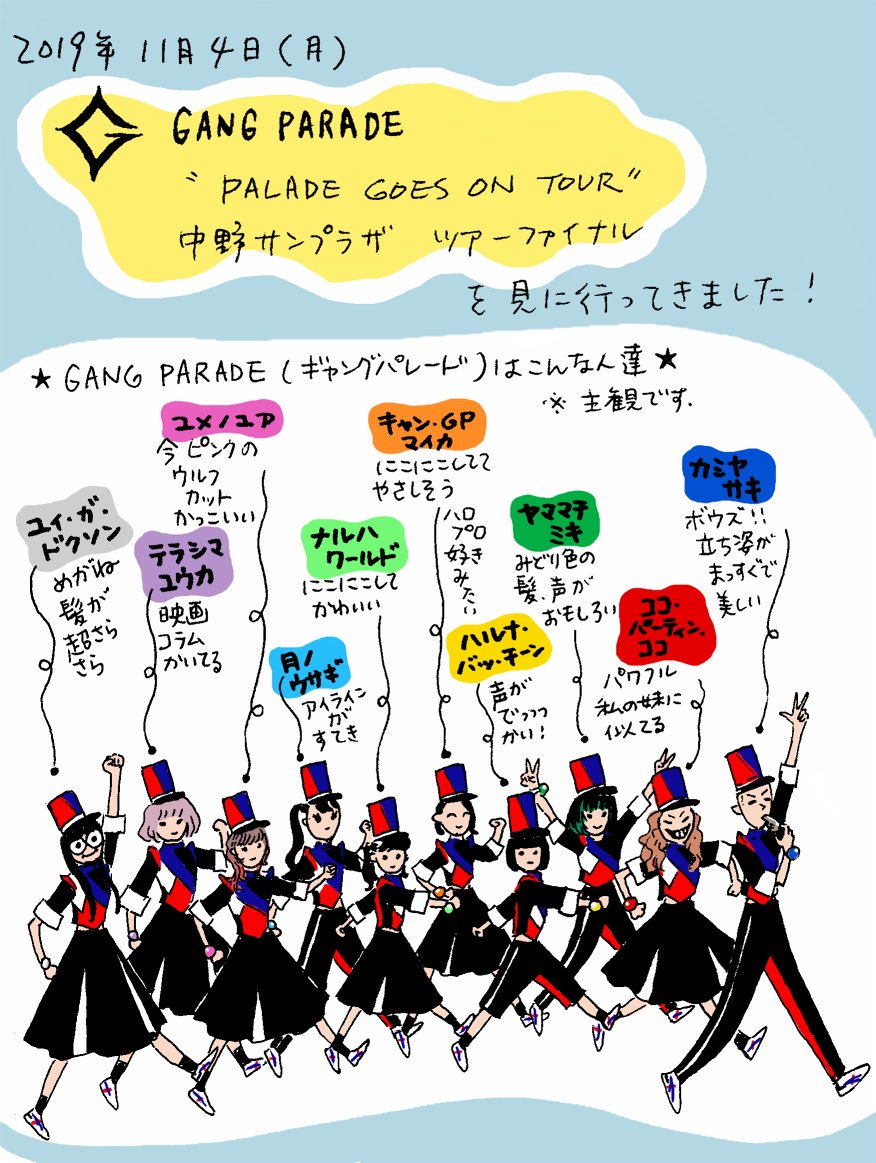 2019年 11月4日(月)
GANG PARADE
“PALADE GOES ON TOUR”
中野サンプラザ ツアーファイナル
を見に行ってきました!
★ GANG PARADE (ギャングパレード)はこんな人達 ★
※ 主観です.
ユメノユア
今ピンクの
ウルフ
カット
かっこいい
キャン・GP
マイカ
にこにこしてて
やさしそう
ハロ
プロ
好き
みたい
カミヤ
サキ
ボウズ!!
立ち姿が
まっすぐで
美しい
ユイ・ガ・
ドクソン
めがね
髪が
超さら
さら
テラシマ
ユウカ
映画
コラム
かいてる
ナルハ
ワールド
にこにこして
かわいい
ヤママチ
ミキ
みどり色の
髪、声が
おもしろい
月ノ
ウサギ
アイライン
が
すてき
ハルナ・
バッ・チーン
声が
でっっっ
かい!
ココ・
パーティン・
ココ
パワフル
私の妹に
似てる